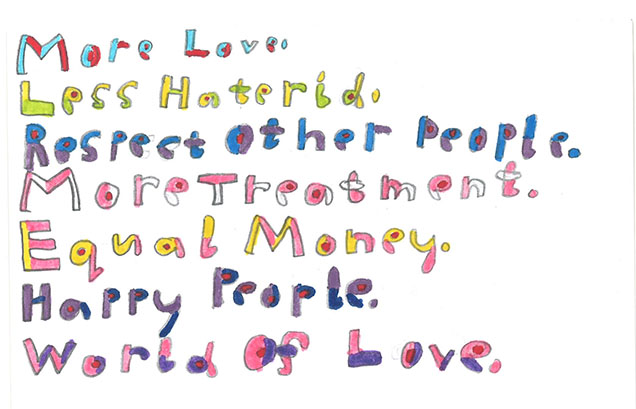 More Love.
Less Haterid.
Respect Other People.
More Treatment.
Equal Money.
Happy People.
World Of Love.